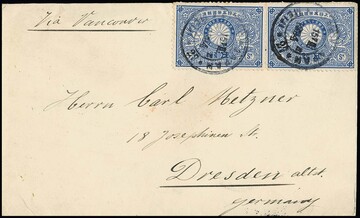 Via Vancouver
Herrn Carl Metzner
18 Josephinen St.
Dresden altst.
Germany